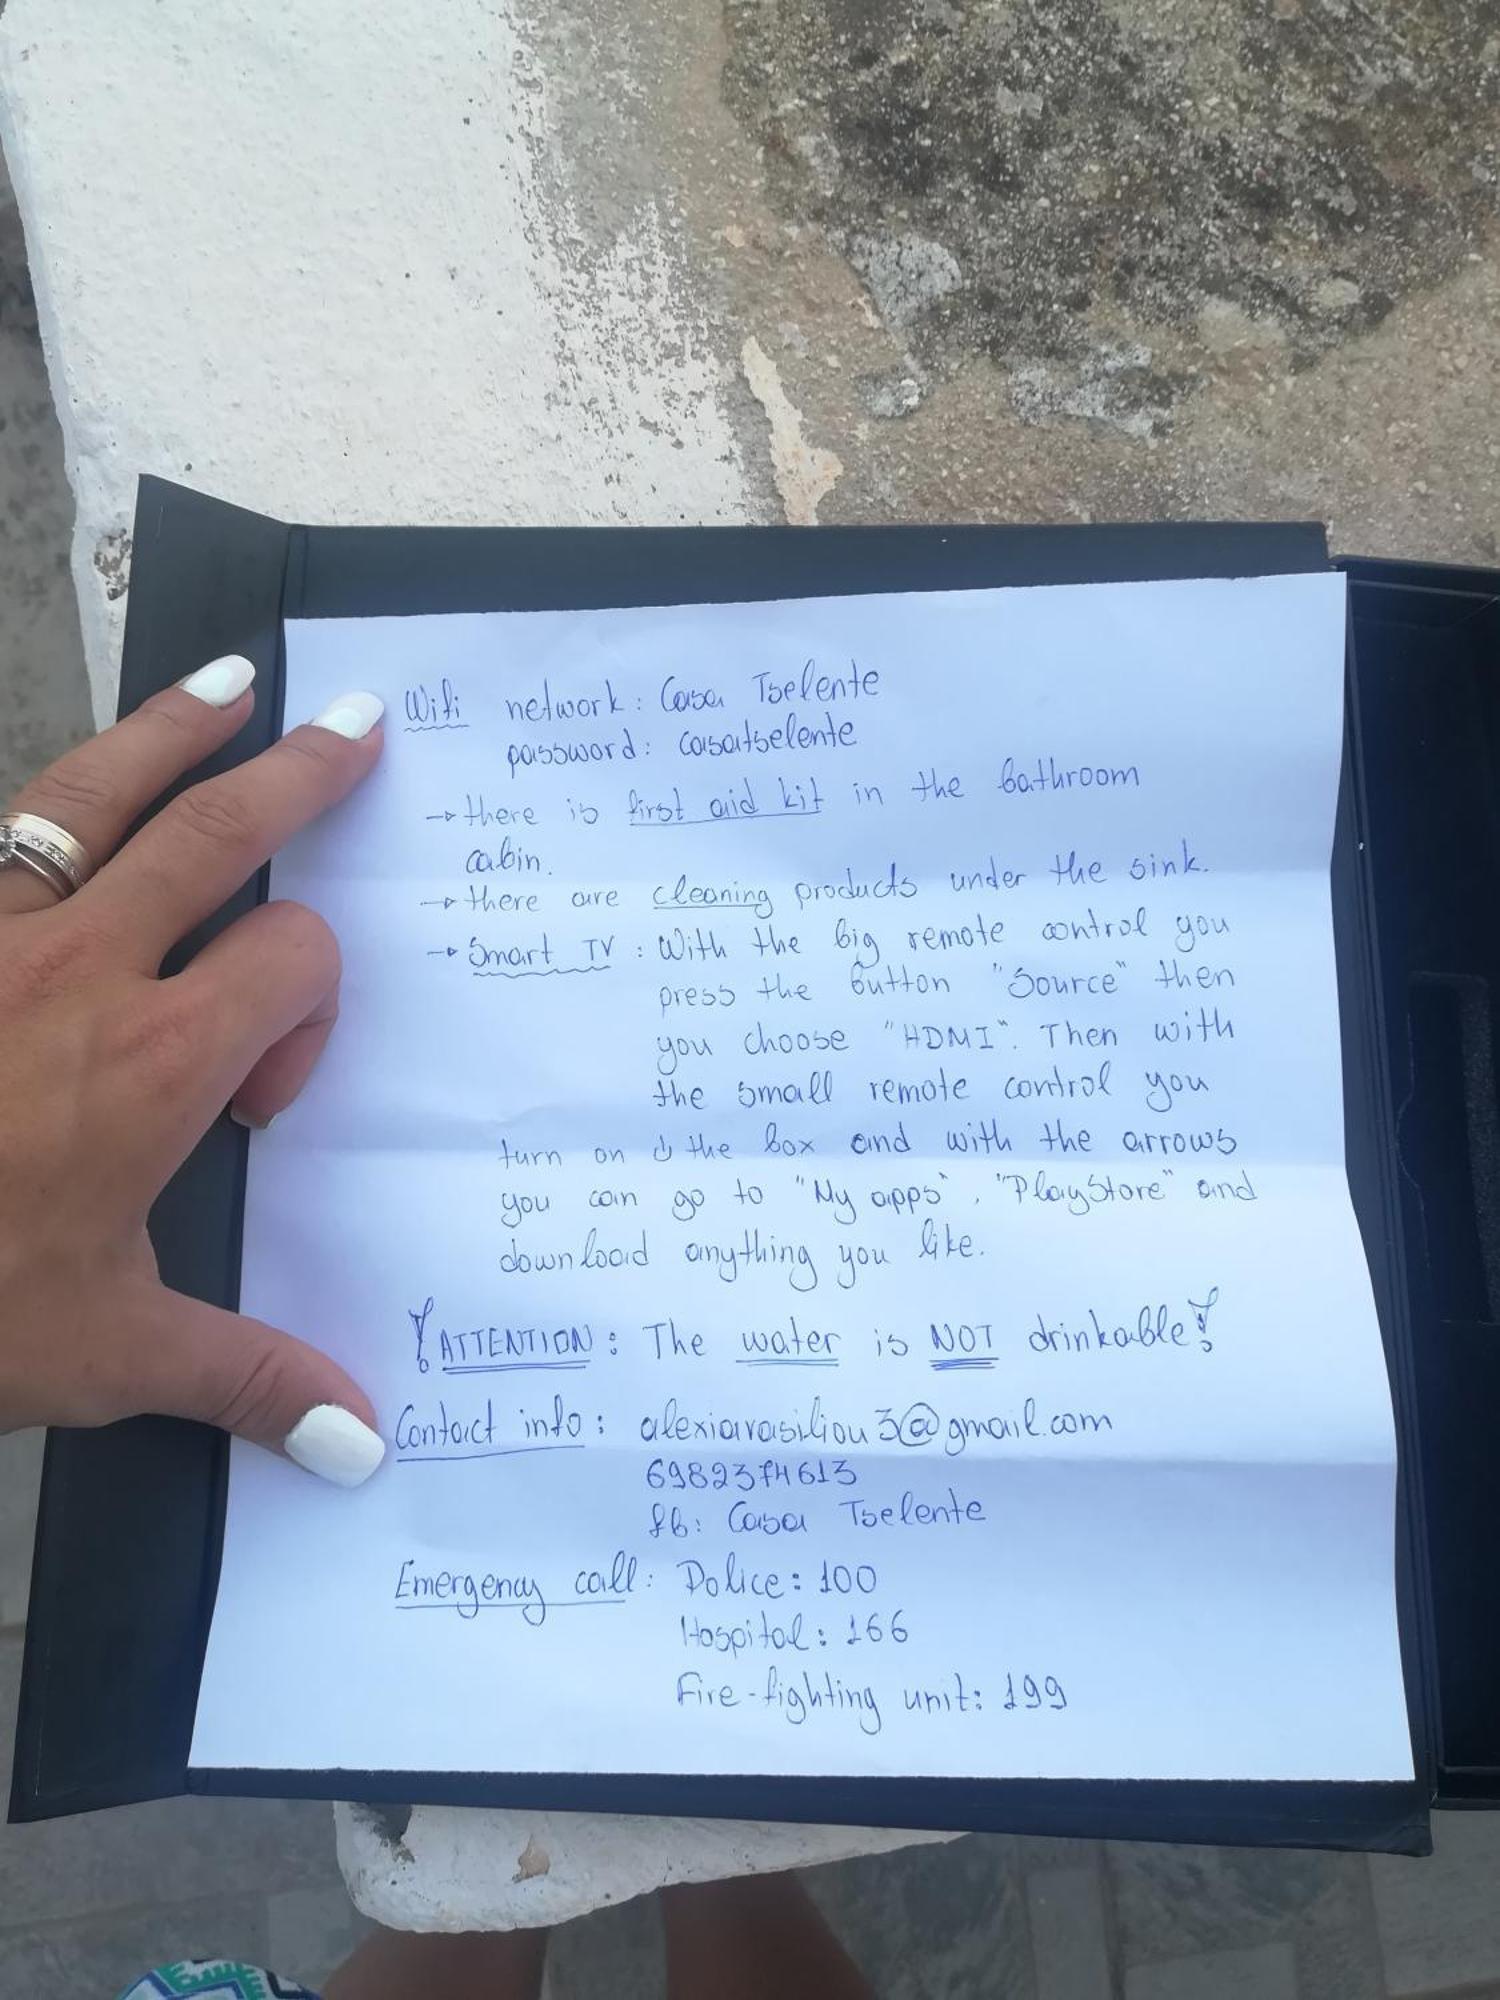 Wifi network: Casa Tselente
password: casatselente
→ there is first aid kit in the bathroom
cabin.
→ there are cleaning products under the sink.
→ Smart TV: With the big remote control you
press the button "Source" then
you choose "HDMI". Then with
the small remote control you
turn on ⏻ the box and with the arrows
you can go to "My apps", "PlayStore" and
download anything you like.
! ATTENTION: The water is NOT drinkable!
Contact info: alexiavasiliou3@gmail.com
6982374613
fb: Casa Tselente
Emergency call: Police: 100
Hospital: 166
Fire-fighting unit: 199